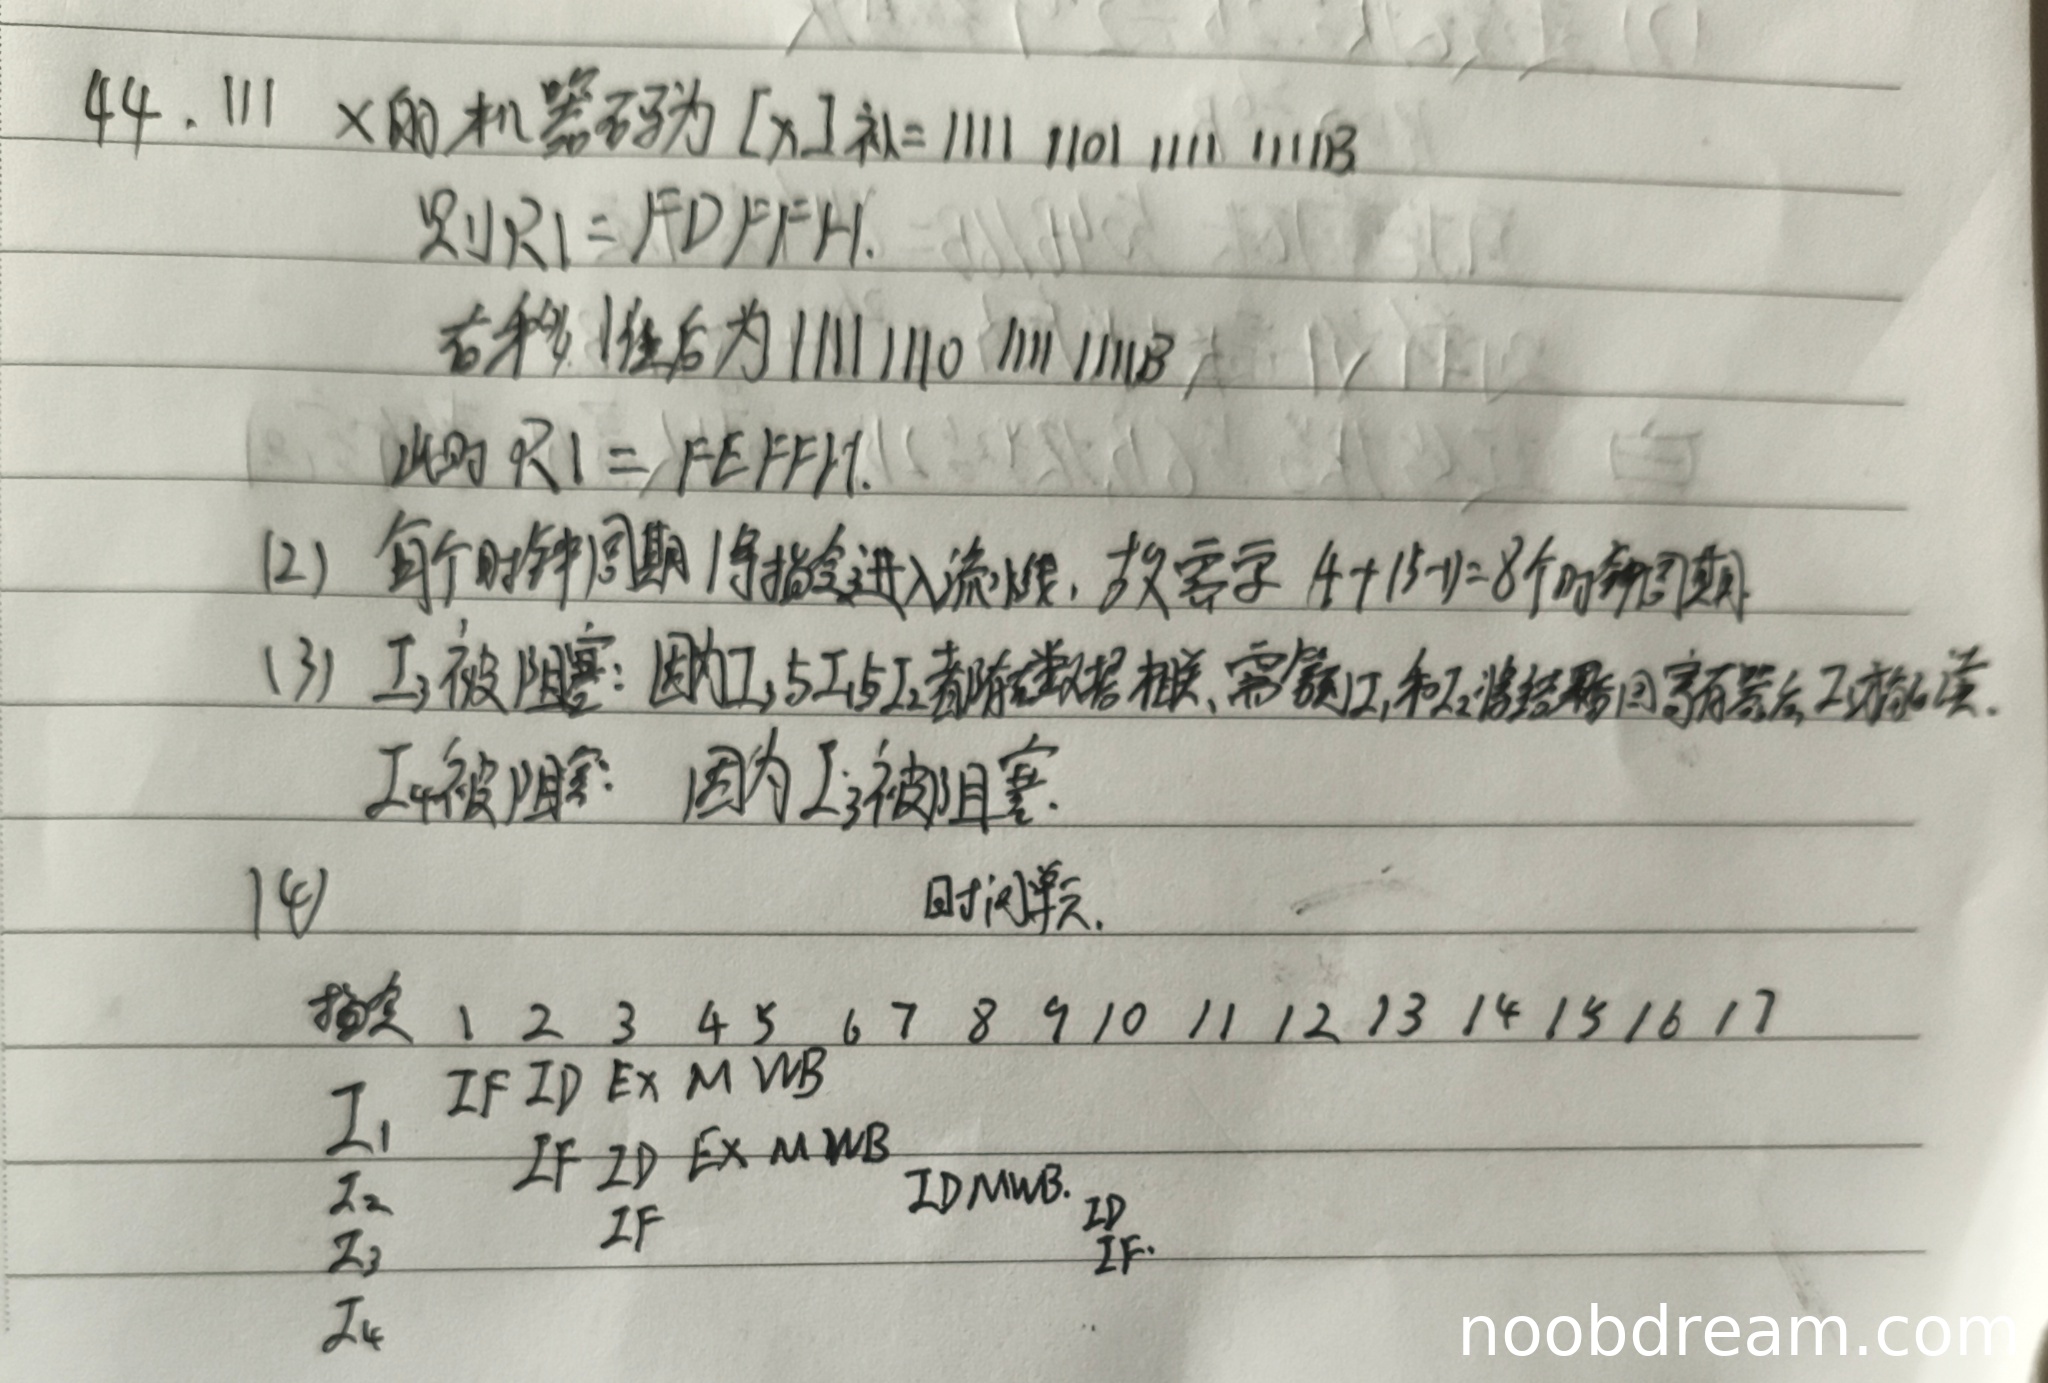 44. (1) x的机器码为[x]补=1111 1101 1111 1111B
则R1=FDFFH.
右移1位后为1111 1110 1111 1111B
此时 R1=FEFFH.
(2) 每个时钟周期1条指令进入流水线，故需字 4+(5-1)=8个时钟周期.
(3) I3被阻塞：因为I3与I1与I2都存在数据相关，需等到I1和I2将结果写回寄存器后I3才能读.
I4被阻塞： 因为I3被阻塞.
(4) 时间单元.
指令 1 2 3 4 5 6 7 8 9 10 11 12 13 14 15 16 17
I1 IF ID EX M WB
I2 IF ID EX M WB
I3 IF ID M WB. ID
I4 IF.
noobdream.com